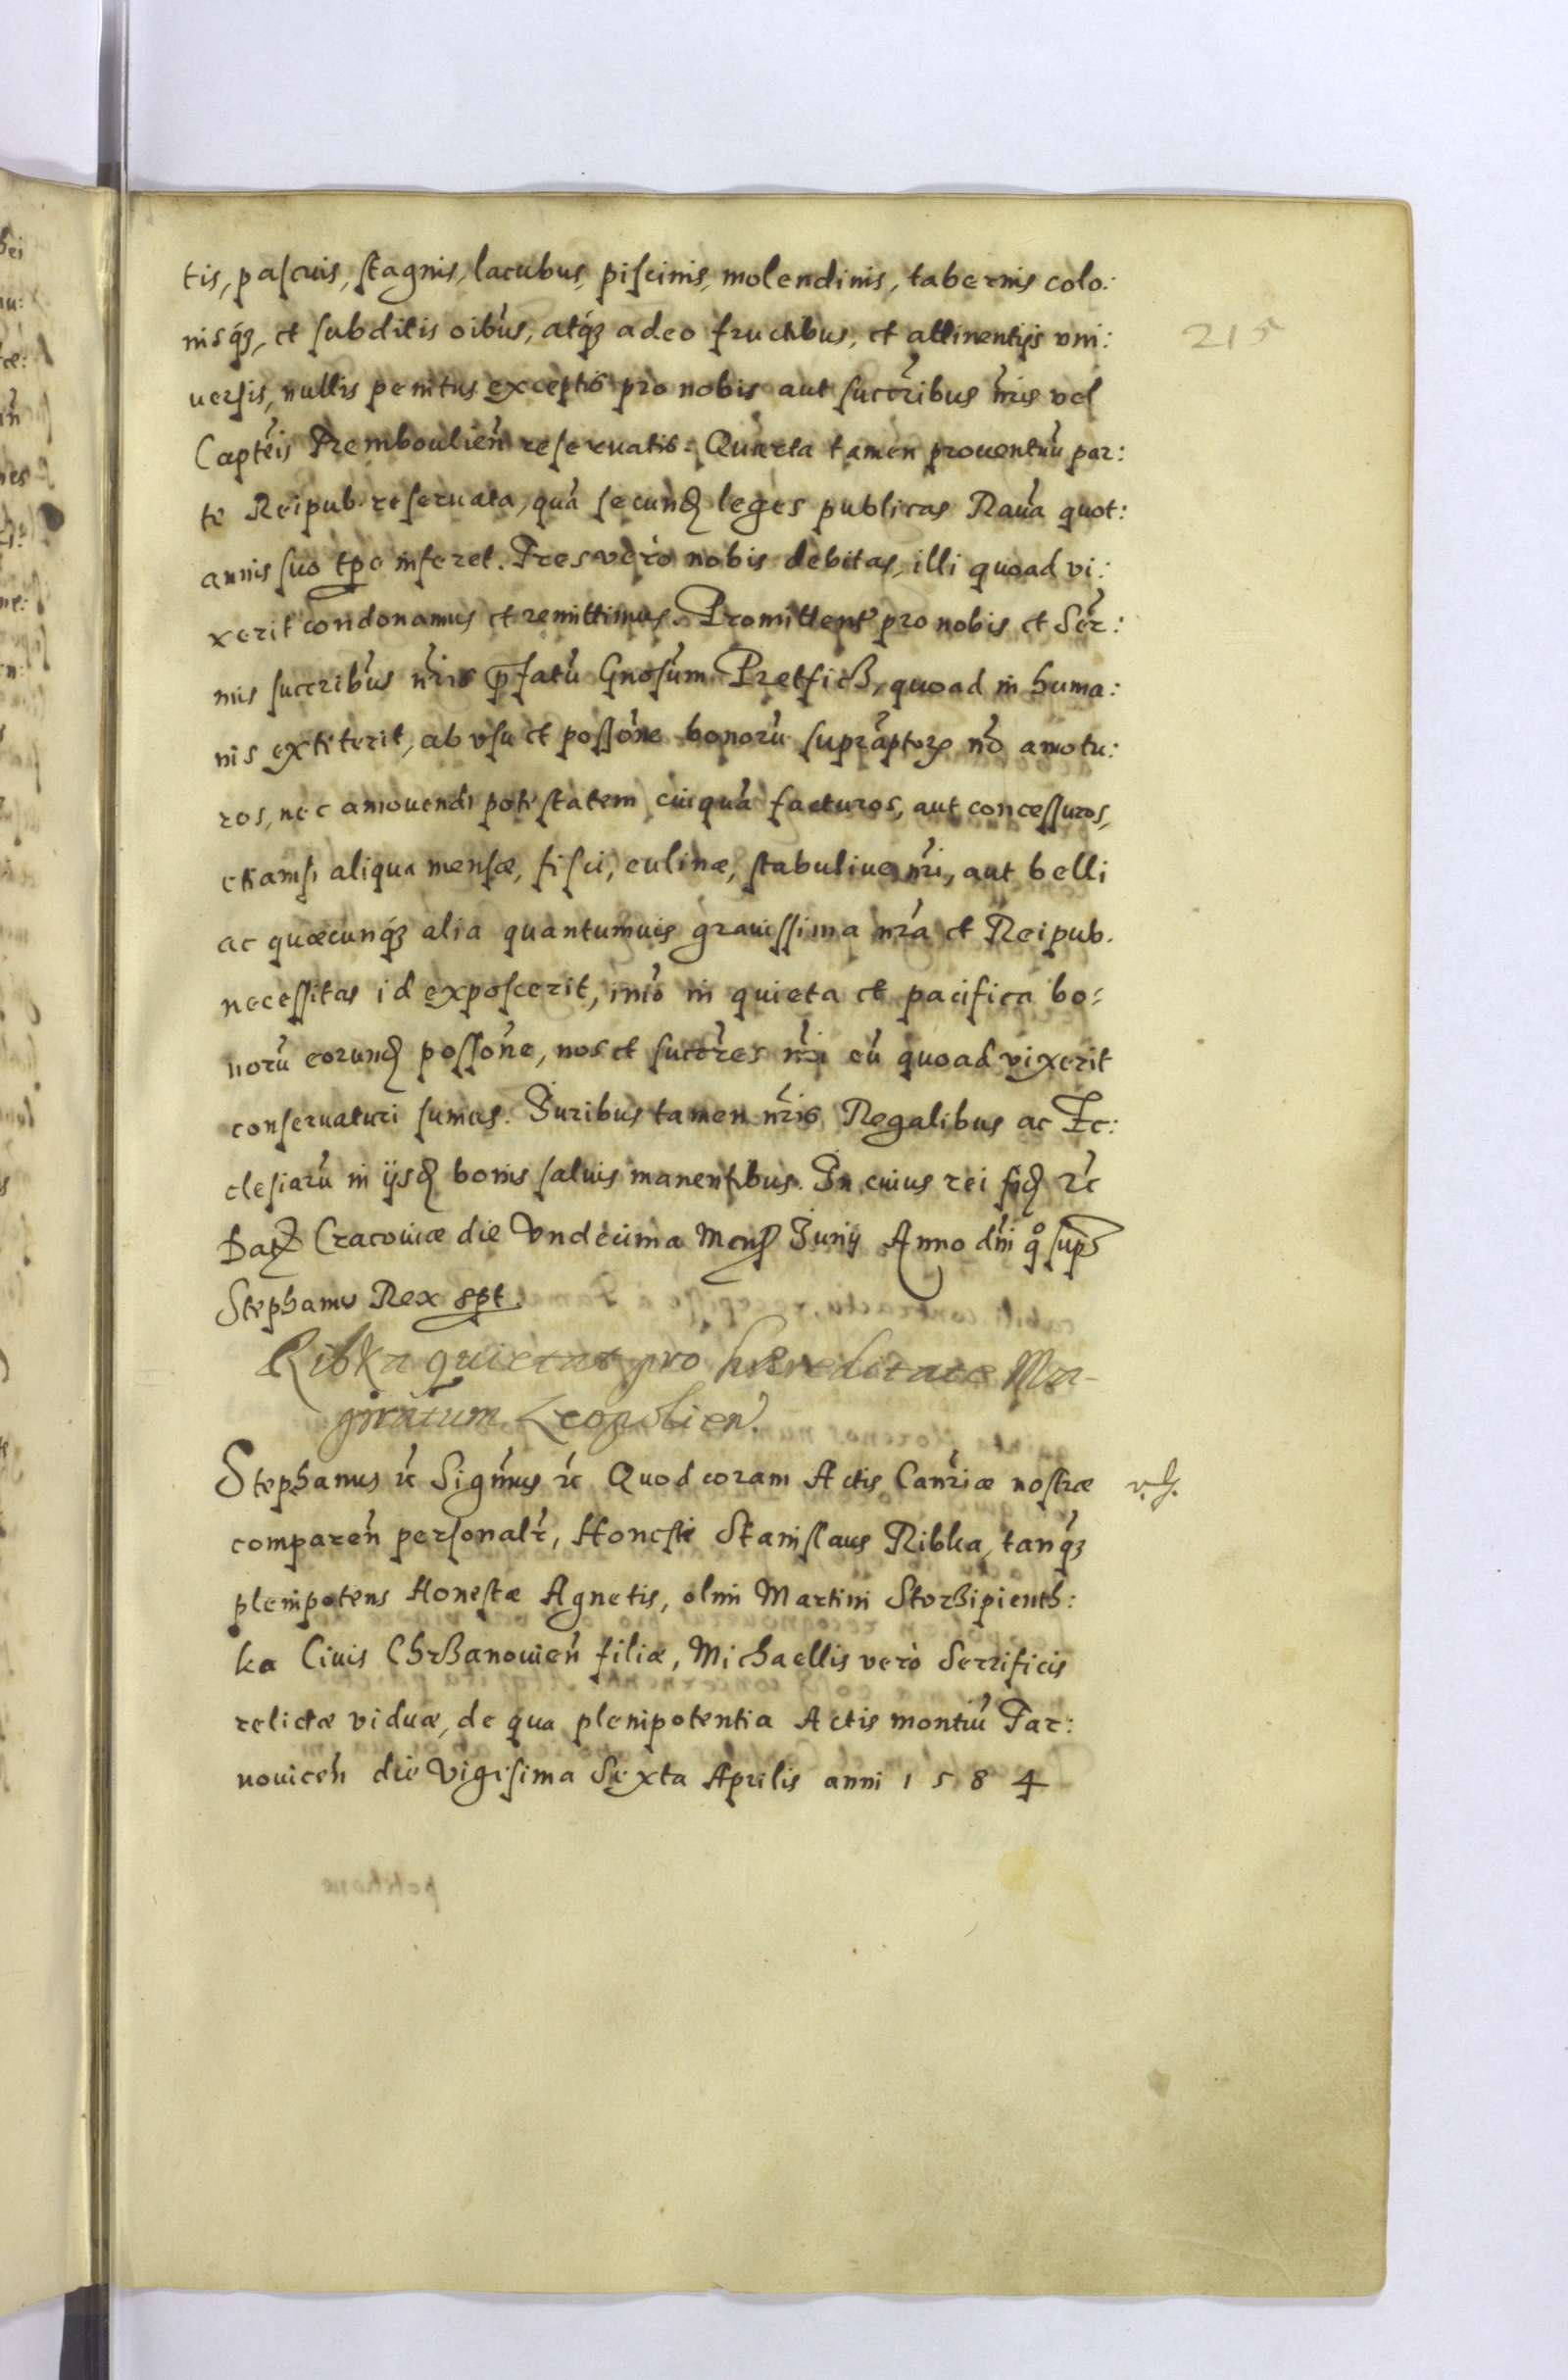 tis, pascuis, stagnis, lacubus, piscinis, molendinis, tabernis colo:
nisq₃, et subditis oib⁹us, atq₃ adeo fructibus, et attinentijs vni:
215
uersis, nullis penitus exceptis pro nobis aut succribus nris vel
Capteis Tremboulien reseruatis. Quarta tamen prouentuū par:
te Reipub. reseruata, quā secund leges publicas Rauā quot:
annis suo tpe inferet. Tres vero nobis debitas, illi quoad vi:
xerit condonamus et remittimus. Promittent pro nobis et Ser:
mis succribus nris pfatū Gnosum Pretficz, quoad in huma:
nis extiterit, ab vsu et possone bonorū supraptor no amotu:
ros, nec amouendi potestatem cuiquā facturos, aut concessuros,
etiamsi aliqua mensæ, fisci, culinæ, stabuliue nri, aut belli
ac quæcunq₃ alia quantumuis grauissima nra et Reipub.
necessitas id exposcerit, imo in quieta et pacifica bo:
norū eorund possone, nos et succres nri eū quoad vixerit
conseruaturi sumus. Iuribus tamen nris Regalibus ac Ec:
clesiarū in ijsd bonis saluis manentibus. In cuius rei fid rc
Dat Cracouiæ die Vndecima Mens Iunij Anno dni qo sups
Stephanus Rex spt.
Ribka quietat pro hæreditate Ma-
gistratum Leopolien.
Stephanus rc Sigmus rc Quod coram Actis Canriæ nostræ
v. s.
comparen personalr, Honeste Stanislaus Ribka, tanq₃
plenipotens Honestæ Agnetis, olim Martini Storzipienth:
ka Ciuis Chrzanouien filiæ, Michaellis vero Serrificis
relictæ viduæ, de qua plenipotentia Actis montiū Tar:
nouicen die Vigesima Sexta Aprilis anni 1584